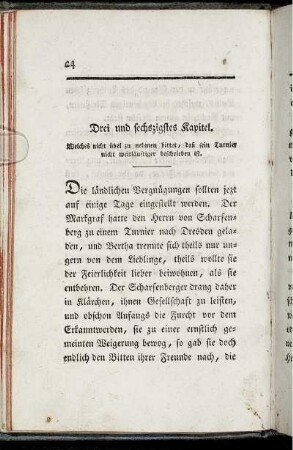 24
Drei und sechszigstes Kapitel.
Welches nicht übel zu nehmen bittet, daß sein Turnier
nicht weitläuftiger beschrieben ist.
Die ländlichen Vergnügungen sollten jezt
auf einige Tage eingestellt werden. Der
Markgraf hatte den Herrn von Scharfen-
berg zu einem Turnier nach Dresden gela-
den, und Bertha trennte sich theils nur un-
gern von dem Lieblinge, theils wollte sie
der Feierlichkeit lieber beiwohnen, als sie
entbehren. Der Scharfenberger drang daher
in Klärchen, ihnen Gesellschaft zu leisten,
und obschon Anfangs die Furcht vor dem
Erkanntwerden, sie zu einer ernstlich ge-
meinten Weigerung bewog, so gab sie doch
endlich den Bitten ihrer Freunde nach, die